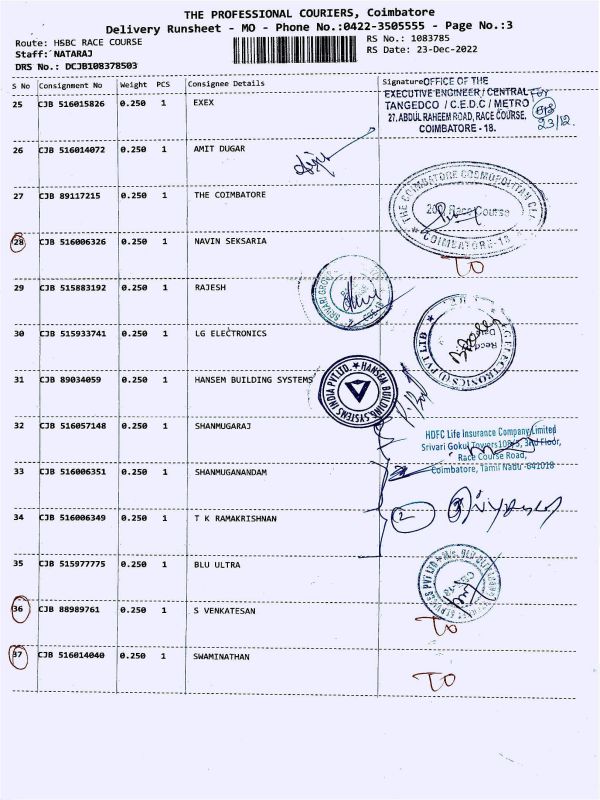 THE PROFESSIONAL COURIERS, Coimbatore
Delivery Runsheet - MO - Phone No.:0422-3505555 - Page No.:3
Route: HSBC RACE COURSE
RS No.: 1083785
Staff: NATARAJ
RS Date: 23-Dec-2022
DRS No.: DCJB108378503
S No Consignment No Weight PCS Consignee Details Signature
OFFICE OF THE
EXECUTIVE ENGINEER / CENTRAL
TANGEDCO / C.E.D.C / METRO
27, ABDUL RAHEEM ROAD, RACE COURSE,
COIMBATORE - 18.
For
23/12.
25 CJB 516015826 0.250 1 EXEX
26 CJB 516014072 0.250 1 AMIT DUGAR
27 CJB 89117215 0.250 1 THE COIMBATORE
THE COIMBATORE COSMOPOLITAN CLUB
Race Course
COIMBATORE-18
28 CJB 516006326 0.250 1 NAVIN SEKSARIA
TO
29 CJB 515883192 0.250 1 RAJESH
30 CJB 515933741 0.250 1 LG ELECTRONICS
31 CJB 89034059 0.250 1 HANSEM BUILDING SYSTEMS
HANSEM BUILDING SYSTEMS INDIA PVT LTD.
32 CJB 516057148 0.250 1 SHANMUGARAJ
HDFC Life Insurance Company Limited
Srivari Gokul Towers 108/5, 3rd Floor,
Race Course Road,
Coimbatore, Tamil Nadu -641018
33 CJB 516006351 0.250 1 SHANMUGANANDAM
34 CJB 516006349 0.250 1 T K RAMAKRISHNAN
2
35 CJB 515977775 0.250 1 BLU ULTRA
36 CJB 88989761 0.250 1 S VENKATESAN
TO
37 CJB 516014040 0.250 1 SWAMINATHAN
TO